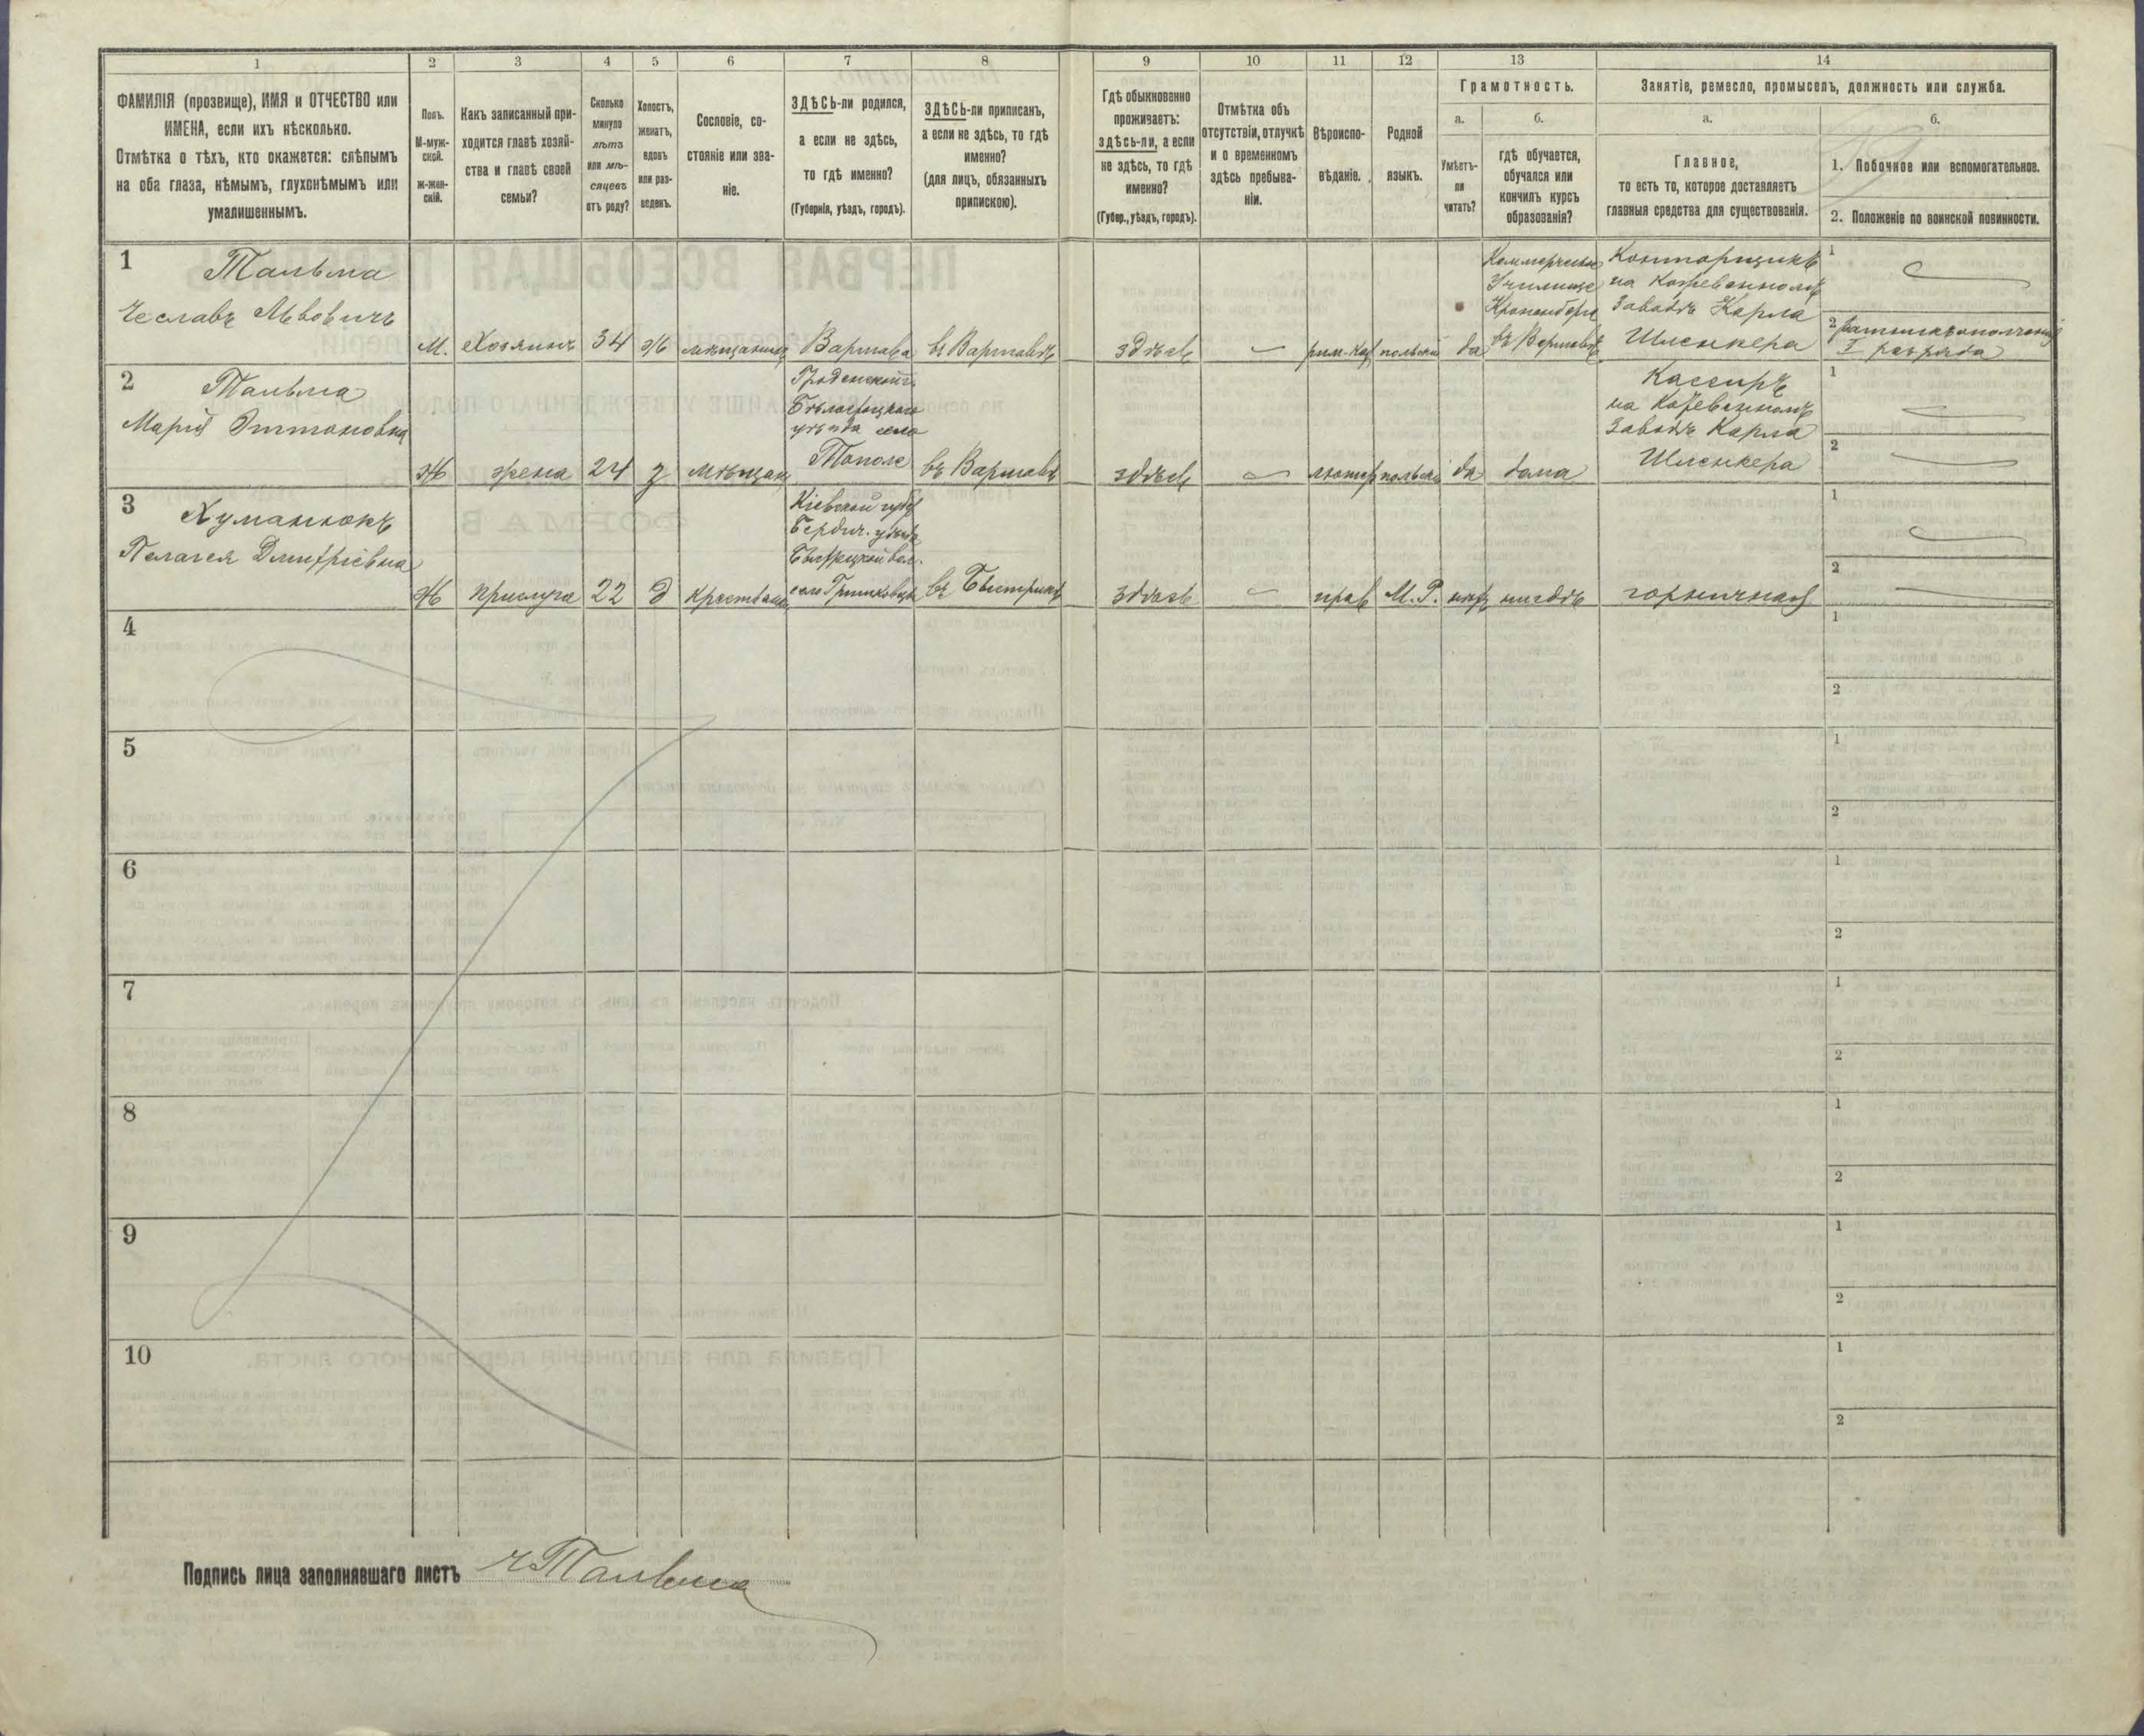 1
2
3
4
5
6
7
8
9
10
11
12
13
14
ФАМИЛІЯ (прозвище), ИМЯ и ОТЧЕСТВО или
ИМЕНА, если ихъ нѣсколько.
Отмѣтка о тѣхъ, кто окажется: слѣпымъ
на оба глаза, нѣмымъ, глухонѣмымъ или
умалишеннымъ.
Полъ.
М-муж-
ской.
Ж-жен-
скій.
Какъ записанный при-
ходится главѣ хозяй-
ства и главѣ своей
семьи?
Сколько
минуло
лѣтъ
или мѣ-
сяцевъ
отъ роду?
Холостъ,
женатъ,
вдовъ
или раз-
веденъ.
Сословіе, со-
стояніе или зва-
ніе.
ЗДѢСЬ-ли родился,
а если не здѣсь,
то гдѣ именно?
(Губернія, уѣздъ, городъ).
ЗДѢСЬ-ли приписанъ,
а если не здѣсь, то гдѣ
именно?
(для лицъ, обязанныхъ
припискою).
Гдѣ обыкновенно
проживаетъ:
здѣсь-ли, а если
не здѣсь, то гдѣ
именно?
(Губер., уѣздъ, городъ).
Отмѣтка объ
отсутствіи, отлучкѣ
и о временномъ
здѣсь пребыва-
ніи.
Вѣроиспо-
вѣданіе.
Родной
языкъ.
Грамотность.
а.
Умѣетъ-
ли
читать?
б.
гдѣ обучается,
обучался или
кончилъ курсъ
образованія?
Занятіе, ремесло, промыселъ, должность или служба.
а.
Главное,
то есть то, которое доставляетъ
главныя средства для существованія.
б.
1. Побочное или вспомогательное.
2. Положеніе по воинской повинности.
1
Тальма
Чеславъ Львовичъ
М.
Хозяинъ
34
ж
мѣщанинъ
Варшава
въ Варшавѣ
здѣсь
рим-кат
польскій
да
Коммерческое
Училище
Кроненберга
въ Варшавѣ
Конторщикъ
на Кожевенномъ
Заводѣ Карла
Шленкера
1
2 Ратникъ ополченія
I разряда
2
Тальма
Марія Антоновна
Ж
жена
24
з
мѣщан
Гродненской г.
Бѣлостоцкаго
уѣзда село
Тополе
въ Варшавѣ
здѣсь
лютер
польскій
да
дома
Кассиръ
на Кожевенномъ
Заводѣ Карла
Шленкера
1
2
3
Хуманюкъ
Пелагея Дмитріевна
Ж
прислуга
22
д
крестьянка
Кіевской губ
Бердич. уѣзда
Быстрицкой вол.
село Гришковцы
въ Быстрикѣ
здѣсь
прав
М. Р.
нѣтъ
нигдѣ
горничная
1
2
4
1
2
5
1
2
6
1
2
7
1
2
8
1
2
9
1
2
10
1
2
Подпись лица заполнявшаго листъ Ч Тальма